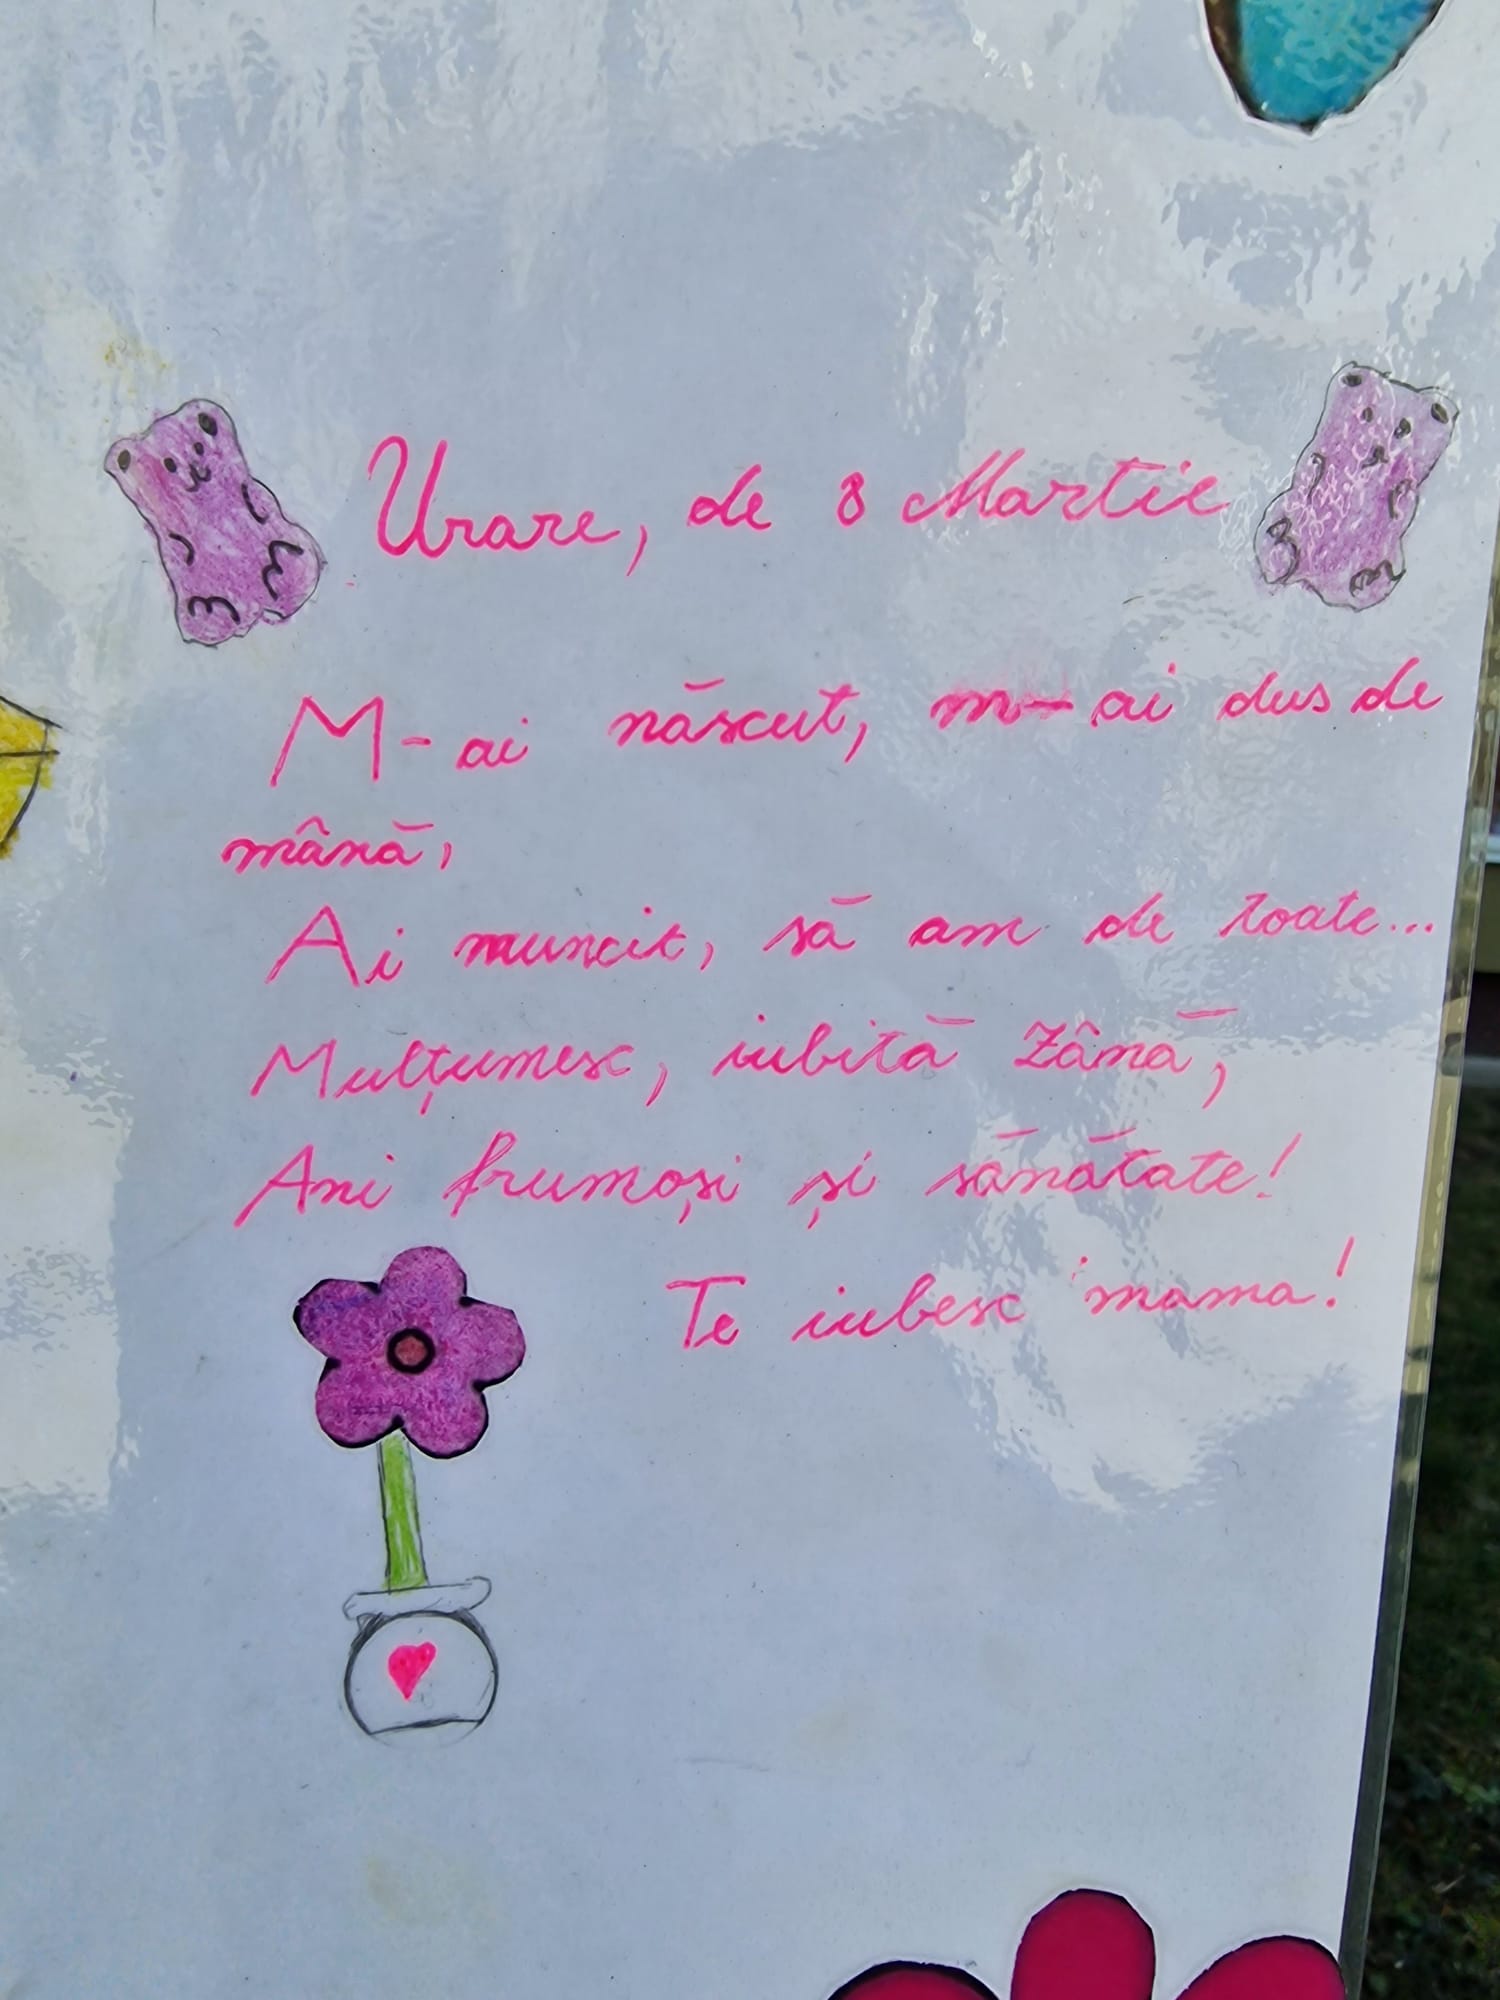 Urare, de 8 Martie
M-ai născut, m-ai dus de
mână,
Ai muncit, să am de toate...
Mulțumesc, iubită Zână,
Ani frumoși și sănătate!
Te iubesc mama!